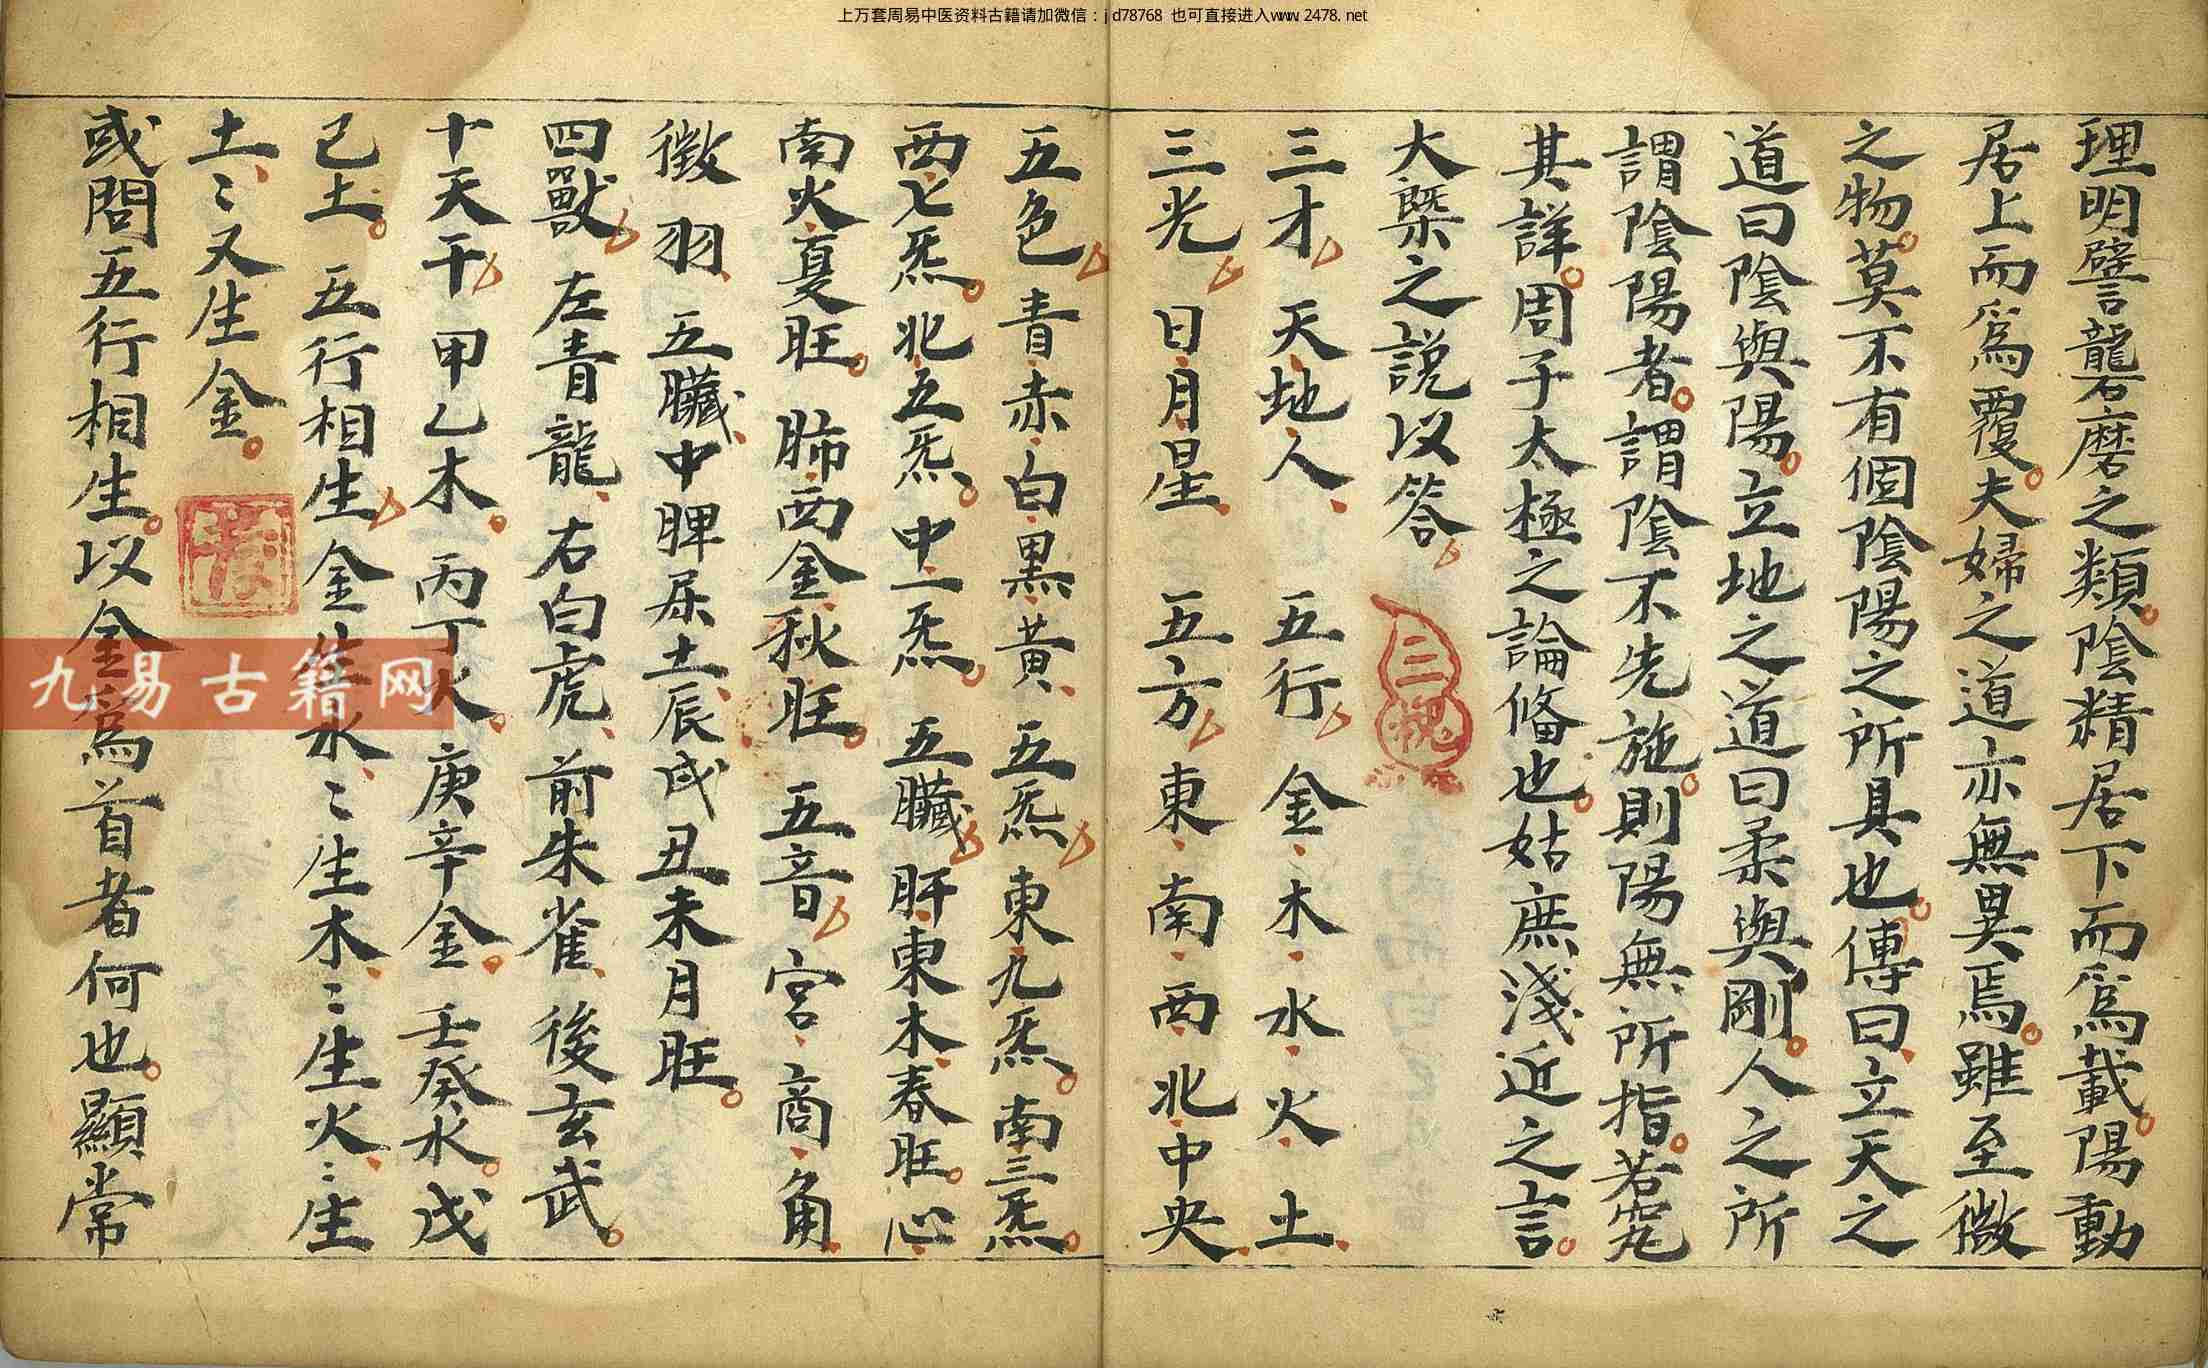 上万套周易中医资料古籍请加微信：jd78768 也可直接进入www.2478.net
理明譬礱磨之類。陰精居下而爲載。陽動
居上而爲覆。夫婦之道亦無異焉。雖至微
之物。莫不有個陰陽之所具也。傳曰、立天之
道曰陰與陽。立地之道曰柔與剛。人之所
謂陰陽者。謂陰不先施。則陽無所指。若究
其詳。周子太極之論俻也。姑庶淺近之言。
大槩之說以答
三才 天地人、 五行 金、木、水、火、土、
三光 日月星、 五方 東、南、西、北、中央、
五色 青、赤、白、黒、黄、 五炁 東九炁。南三炁。
西七炁。北五炁。中一炁。 五臟 肝東木、春旺。心
南火、夏旺。 肺西金、秋旺。 五音 宮、商、角、
徵 羽、 五臟、中脾屎土、辰戌丑未月旺。
四獸 左青龍、右白虎、前朱雀、後玄武。
十天干 甲乙木。 丙丁火、庚辛金。壬癸水。戊
己土。 五行相生 金生水、〻生木、〻生火、〻生
土、〻又生金。
或問五行相生。以金爲首者何也。顯常
九易古籍网